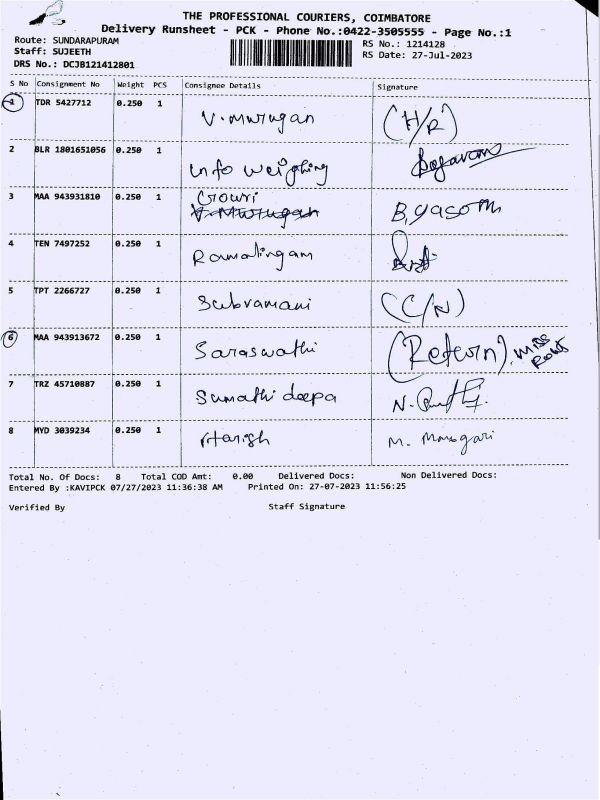 THE PROFESSIONAL COURIERS, COIMBATORE
Delivery Runsheet - PCK - Phone No.:0422-3505555 - Page No.:1
Route: SUNDARAPURAM RS No.: 1214128
Staff: SUJEETH RS Date: 27-Jul-2023
DRS No.: DCJB121412801
S No Consignment No Weight PCS Consignee Details Signature
1 TDR 5427712 0.250 1 V. Murugan (H/R)
2 BLR 1801651056 0.250 1 Info Weighing
3 MAA 943931810 0.250 1 Gowri V. Murugan B. yasoth
4 TEN 7497252 0.250 1 Ramalingam
5 TPT 2266727 0.250 1 Subramani (C/N)
6 MAA 943913672 0.250 1 Saraswathi (Return). Miss Route
7 TRZ 45710887 0.250 1 Sumathi deepa
8 MYD 3039234 0.250 1 Harish
Total No. Of Docs: 8 Total COD Amt: 0.00 Delivered Docs: Non Delivered Docs:
Entered By :KAVIPCK 07/27/2023 11:36:38 AM Printed On: 27-07-2023 11:56:25
Verified By Staff Signature